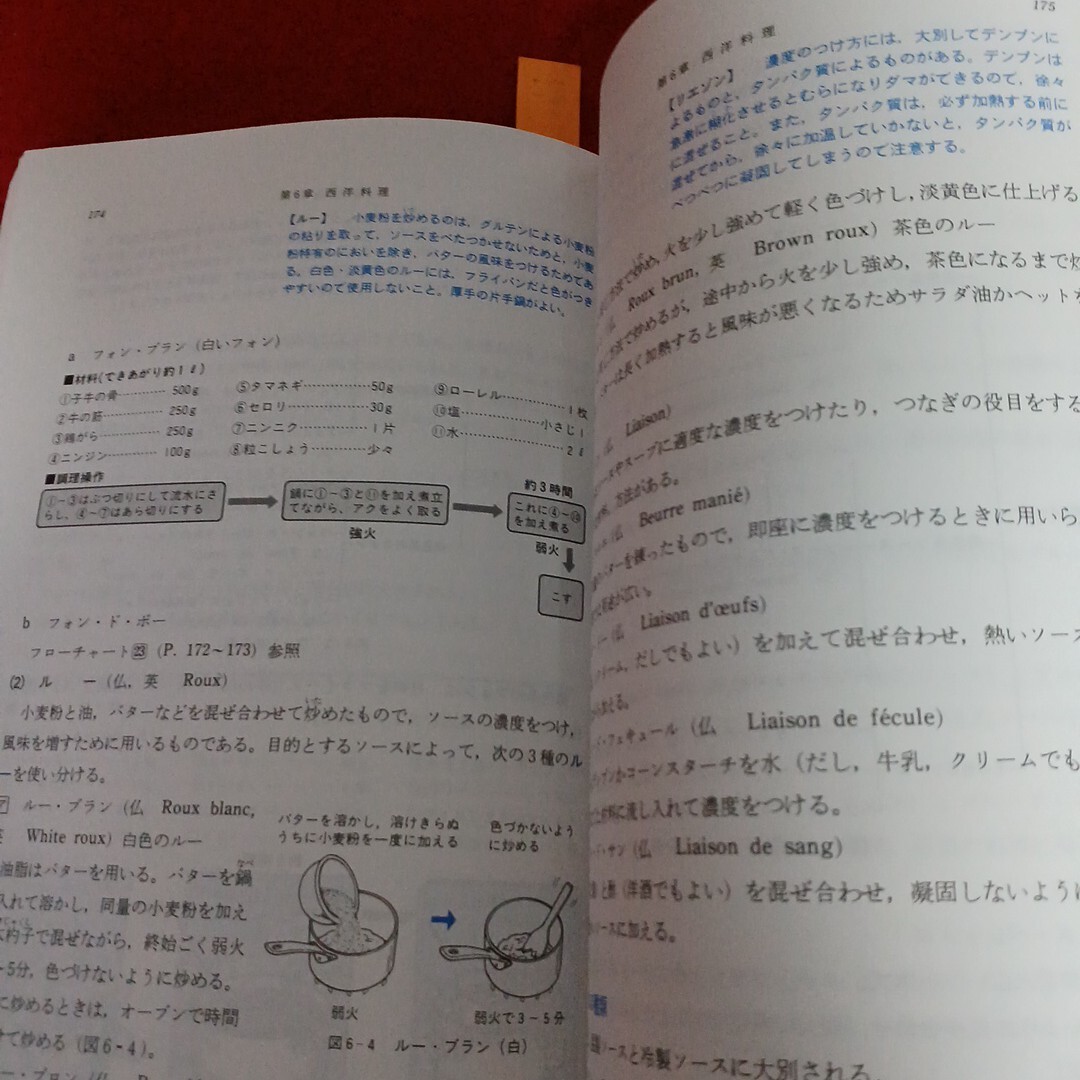 174
第6章 西洋料理
【ルー】 小麦粉を炒めるのは，グルテンによる小麦粉
の粘りを取って，ソースをべたつかせないためと，小麦
粉特有のにおいを除き，バターの風味をつけるためであ
る。白色・淡黄色のルーには，フライパンだと色がつき
やすいので使用しないこと。厚手の片手鍋がよい。
a フォン・ブラン（白いフォン）
■材料(できあがり約1ℓ)
①子牛の骨………… 500g
②牛の筋………… 250g
③鶏がら………… 250g
④ニンジン………… 100g
⑤タマネギ…………50g
⑥セロリ…………30g
⑦ニンニク…………1片
⑧粒こしょう…………少々
⑨ローレル…………1枚
⑩塩…………小さじ1
⑪水…………2ℓ
■調理操作
①〜③はぶつ切りにして流水にさ
らし，④〜⑦はあら切りにする
鍋に①〜③と⑪を加え煮立
てながら，アクをよく取る
強火
約3時間
これに④〜⑩
を加え煮る
弱火
こす
b フォン・ド・ボー
フローチャート㉓（P. 172〜173）参照
(2) ル ー（仏，英 Roux）
小麦粉と油，バターなどを混ぜ合わせて炒めたもので，ソースの濃度をつけ，
風味を増すために用いるものである。目的とするソースによって，次の3種のル
ーを使い分ける。
ア ルー・ブラン（仏 Roux blanc,
英 White roux）白色のルー
油脂はバターを用いる。バターを鍋
入れて溶かし，同量の小麦粉を加え
杓子で混ぜながら，終始ごく弱火
5分，色づけないように炒める。
に炒めるときは，オーブンで時間
けて炒める（図6-4）。
バターを溶かし，溶けきらぬ
うちに小麦粉を一度に加える
色づかないよう
に炒める
弱火
弱火で3〜5分
図6-4 ルー・ブラン（白）
175
第6章 西洋料理
【リエゾン】 濃度のつけ方には，大別してデンプンに
よるものと，タンパク質によるものがある。デンプンは
急激に糊化させるとむらになりダマができるので，徐々
に混ぜること。また，タンパク質は，必ず加熱する前に
混ぜてから，徐々に加温していかないと，タンパク質が
べつべつに凝固してしまうので注意する。
炒め，火を少し強めて軽く色づけし，淡黄色に仕上げる
Roux brun, 英 Brown roux）茶色のルー
方法で炒めるが，途中から火を少し強め，茶色になるまで炒
ターは長く加熱すると風味が悪くなるためサラダ油かヘットを
Liaison)
スやスープに適度な濃度をつけたり，つなぎの役目をする
方法がある。
仏 Beurre manié)
バターを練ったもので，即座に濃度をつけるときに用いら
広い。
仏 Liaison d'œufs)
クリーム，だしでもよい）を加えて混ぜ合わせ，熱いソー
加える。
フェキュール（仏 Liaison de fécule)
コーンスターチを水（だし，牛乳，クリームでも
に流し入れて濃度をつける。
サン（仏 Liaison de sang)
と酢（洋酒でもよい）を混ぜ合わせ，凝固しないように
ソースに加える。
ソースと冷製ソースに大別される。